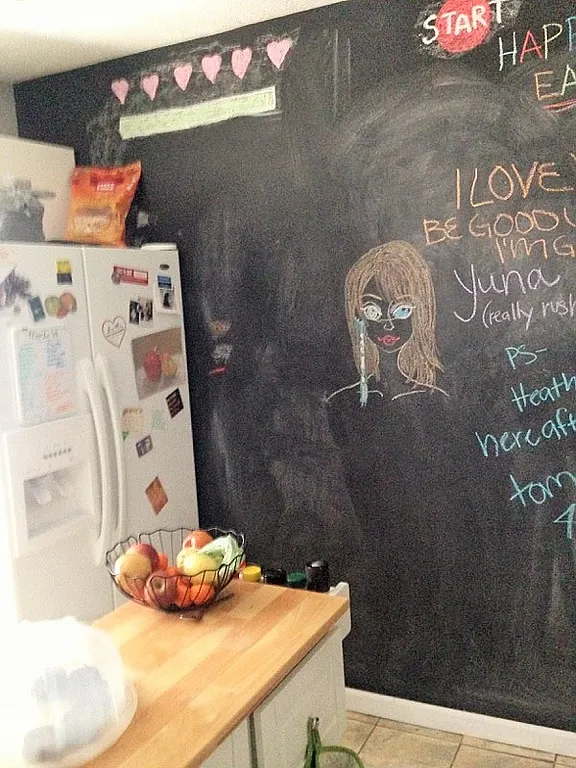 START
HAPP
EA
I LOVE
BE GOOD
I'M G
Yuna
(really rush
PS-
Heath
here aft
tom
4